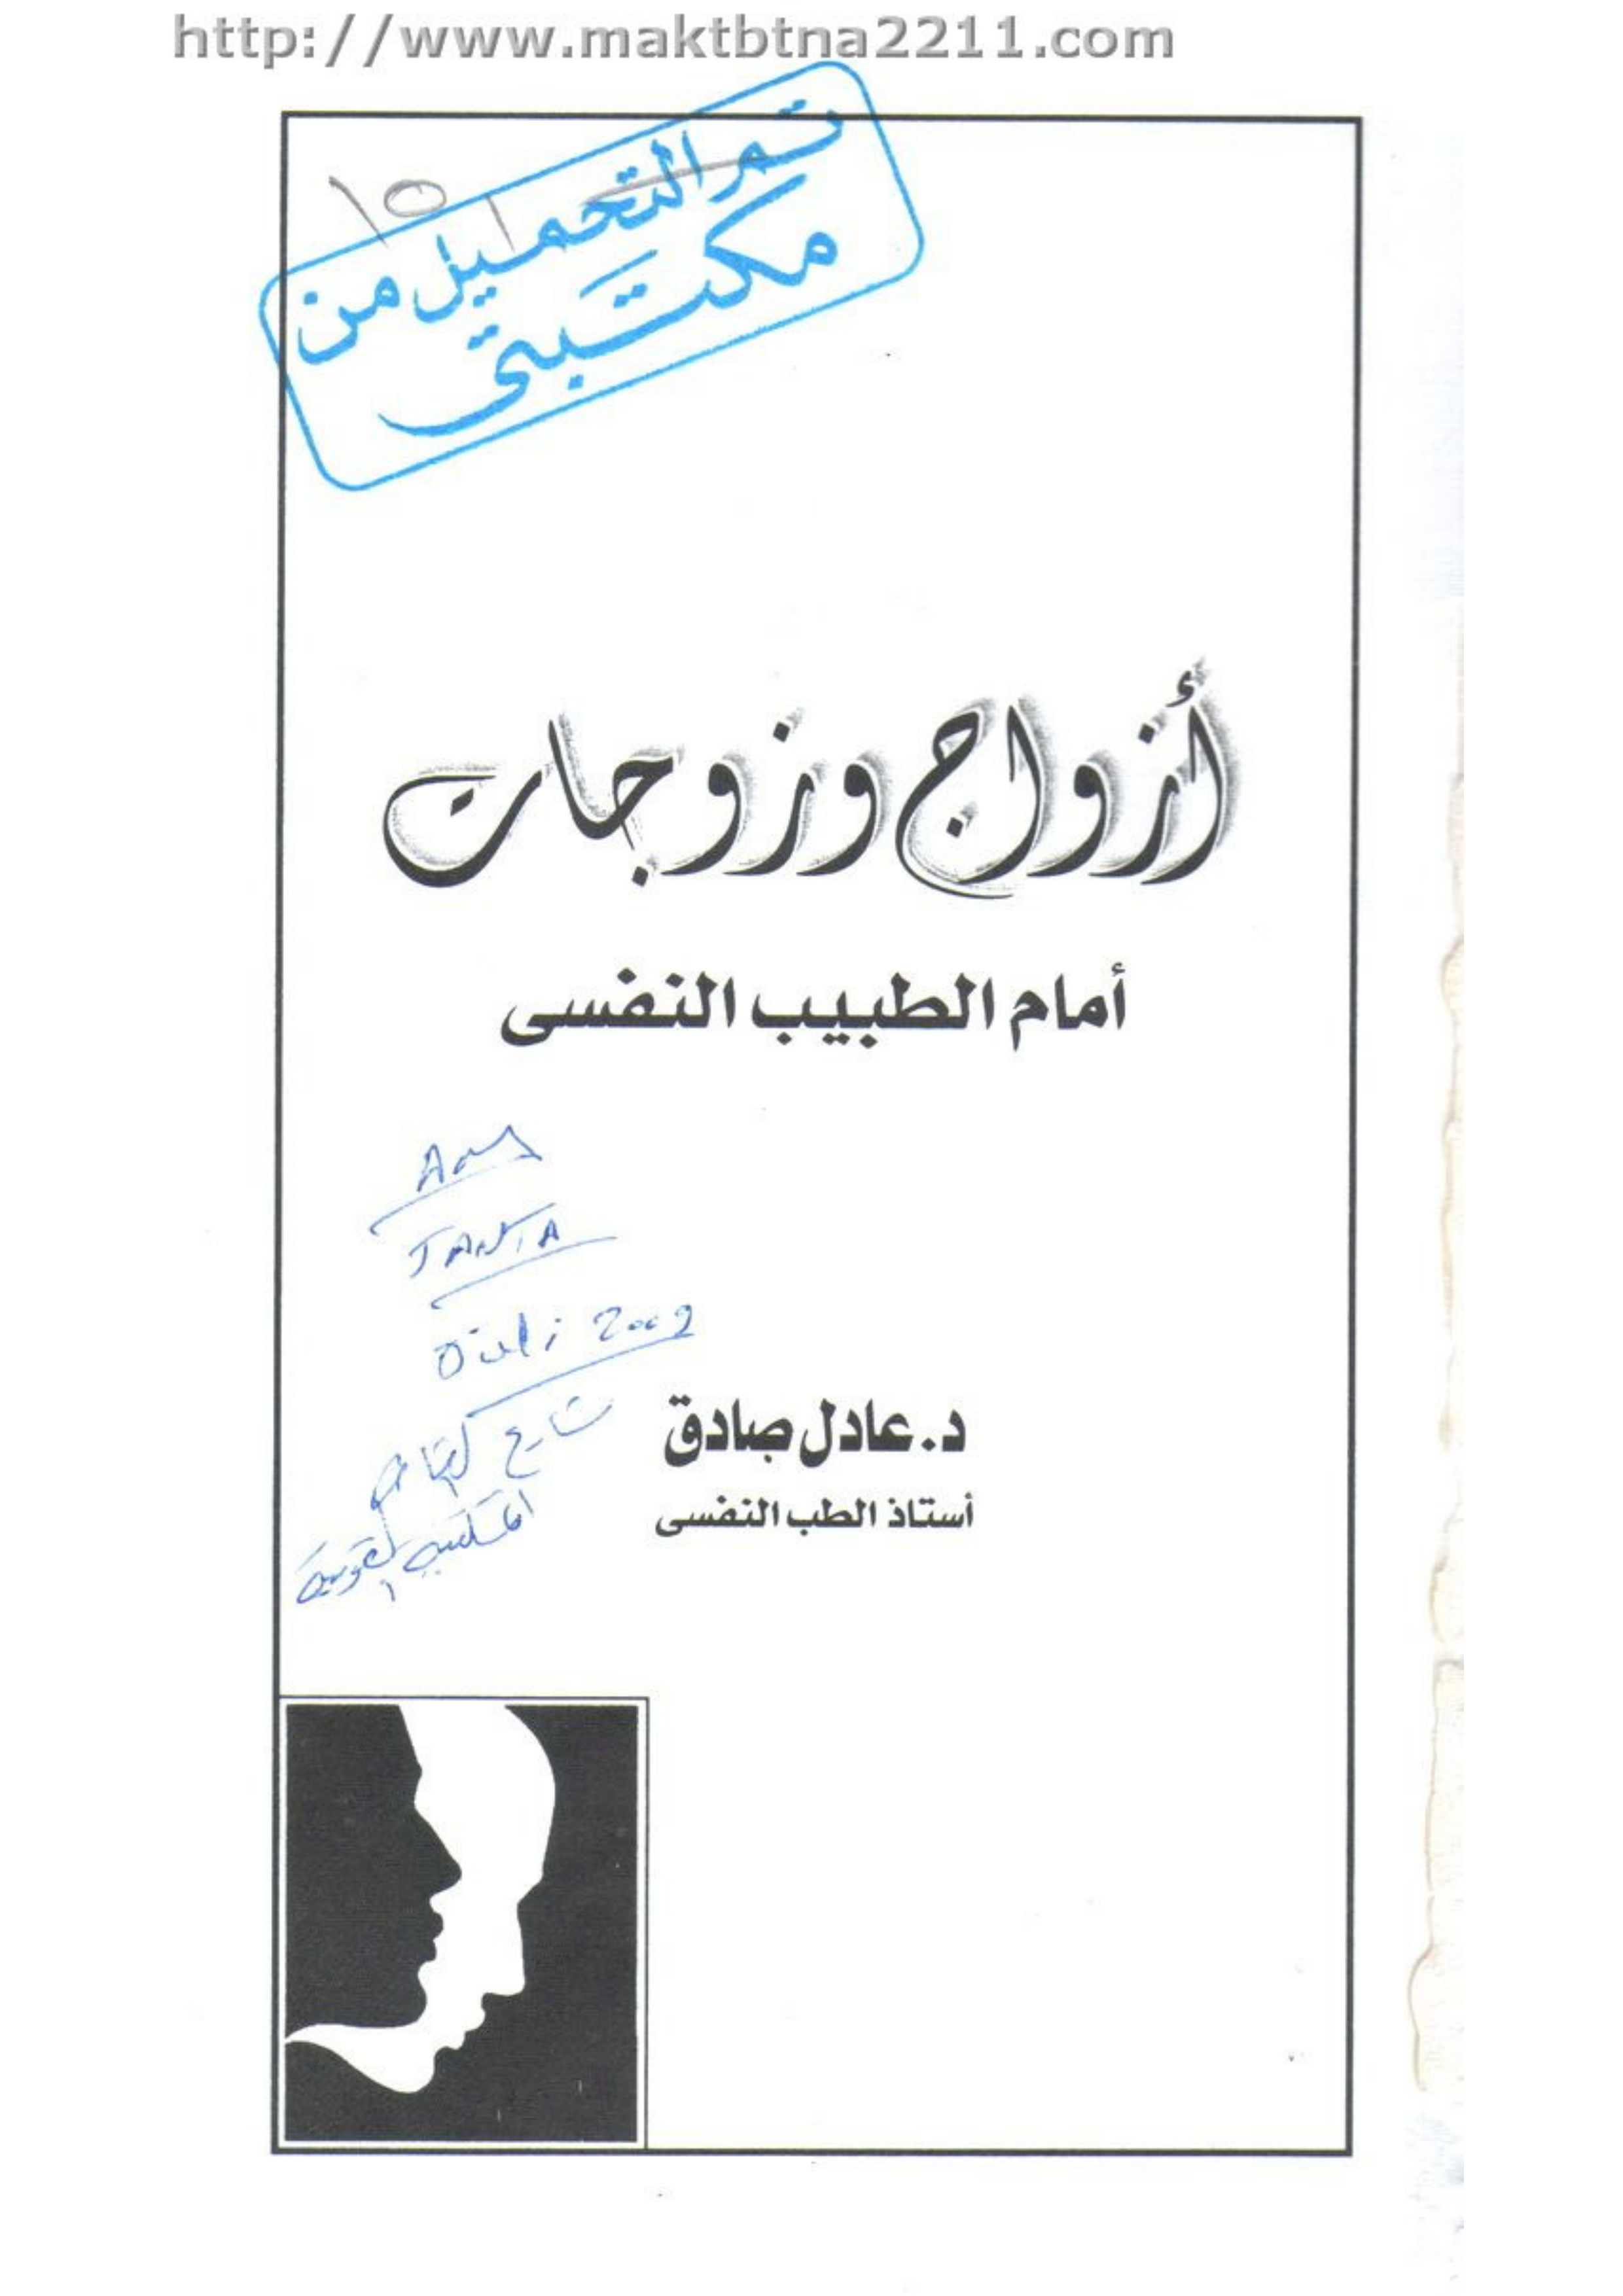 http://www.maktbtna2211.com
تم التحميل من
مكتبتى
أزواج وزوجات
أمام الطبيب النفسى
TANTA
2009
د. عادل صادق
أستاذ الطب النفسى